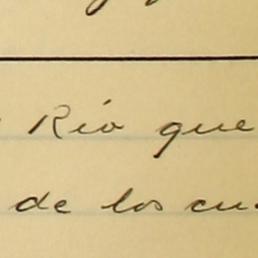 Río que
de los cu